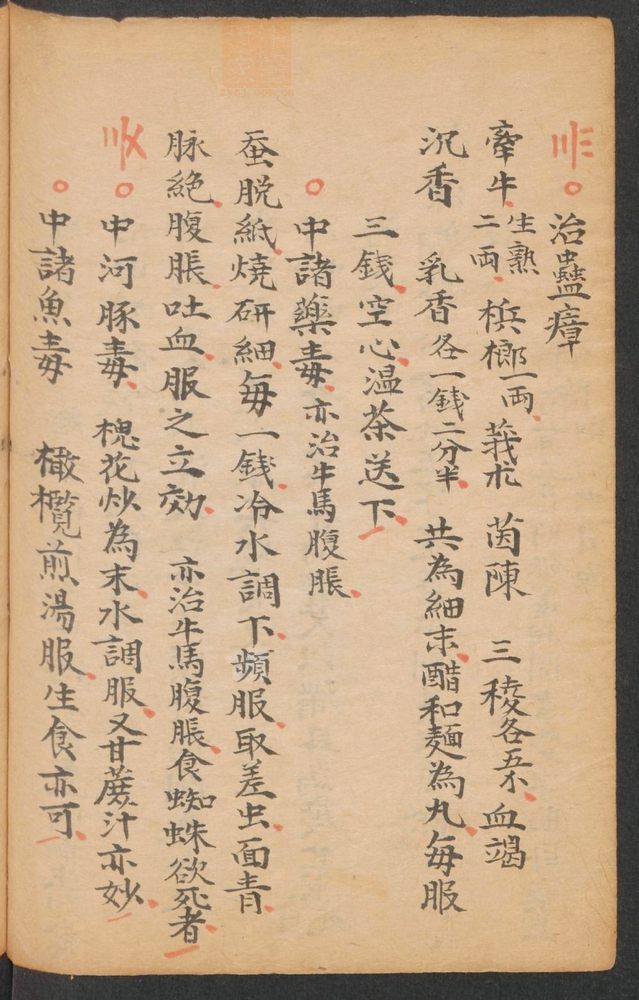 治蠱瘴
牽牛生熟二両 梹榔一両 莪朮 茵陳 三稜各五 血竭
沉香 乳香各一錢二分半 共為細末醋和麵為丸每服
三錢空心温茶送下
中諸藥毒亦治牛馬腹脹
蚕脱紙燒研細每一錢冷水調下頻服取差虫面青
脉絶腹脹吐血服之立効 亦治牛馬腹脹食蜘蛛欲死者
中河豚毒 槐花炒為末水調服又甘蔗汁亦妙
中諸魚毒 橄欖煎湯服生食亦可